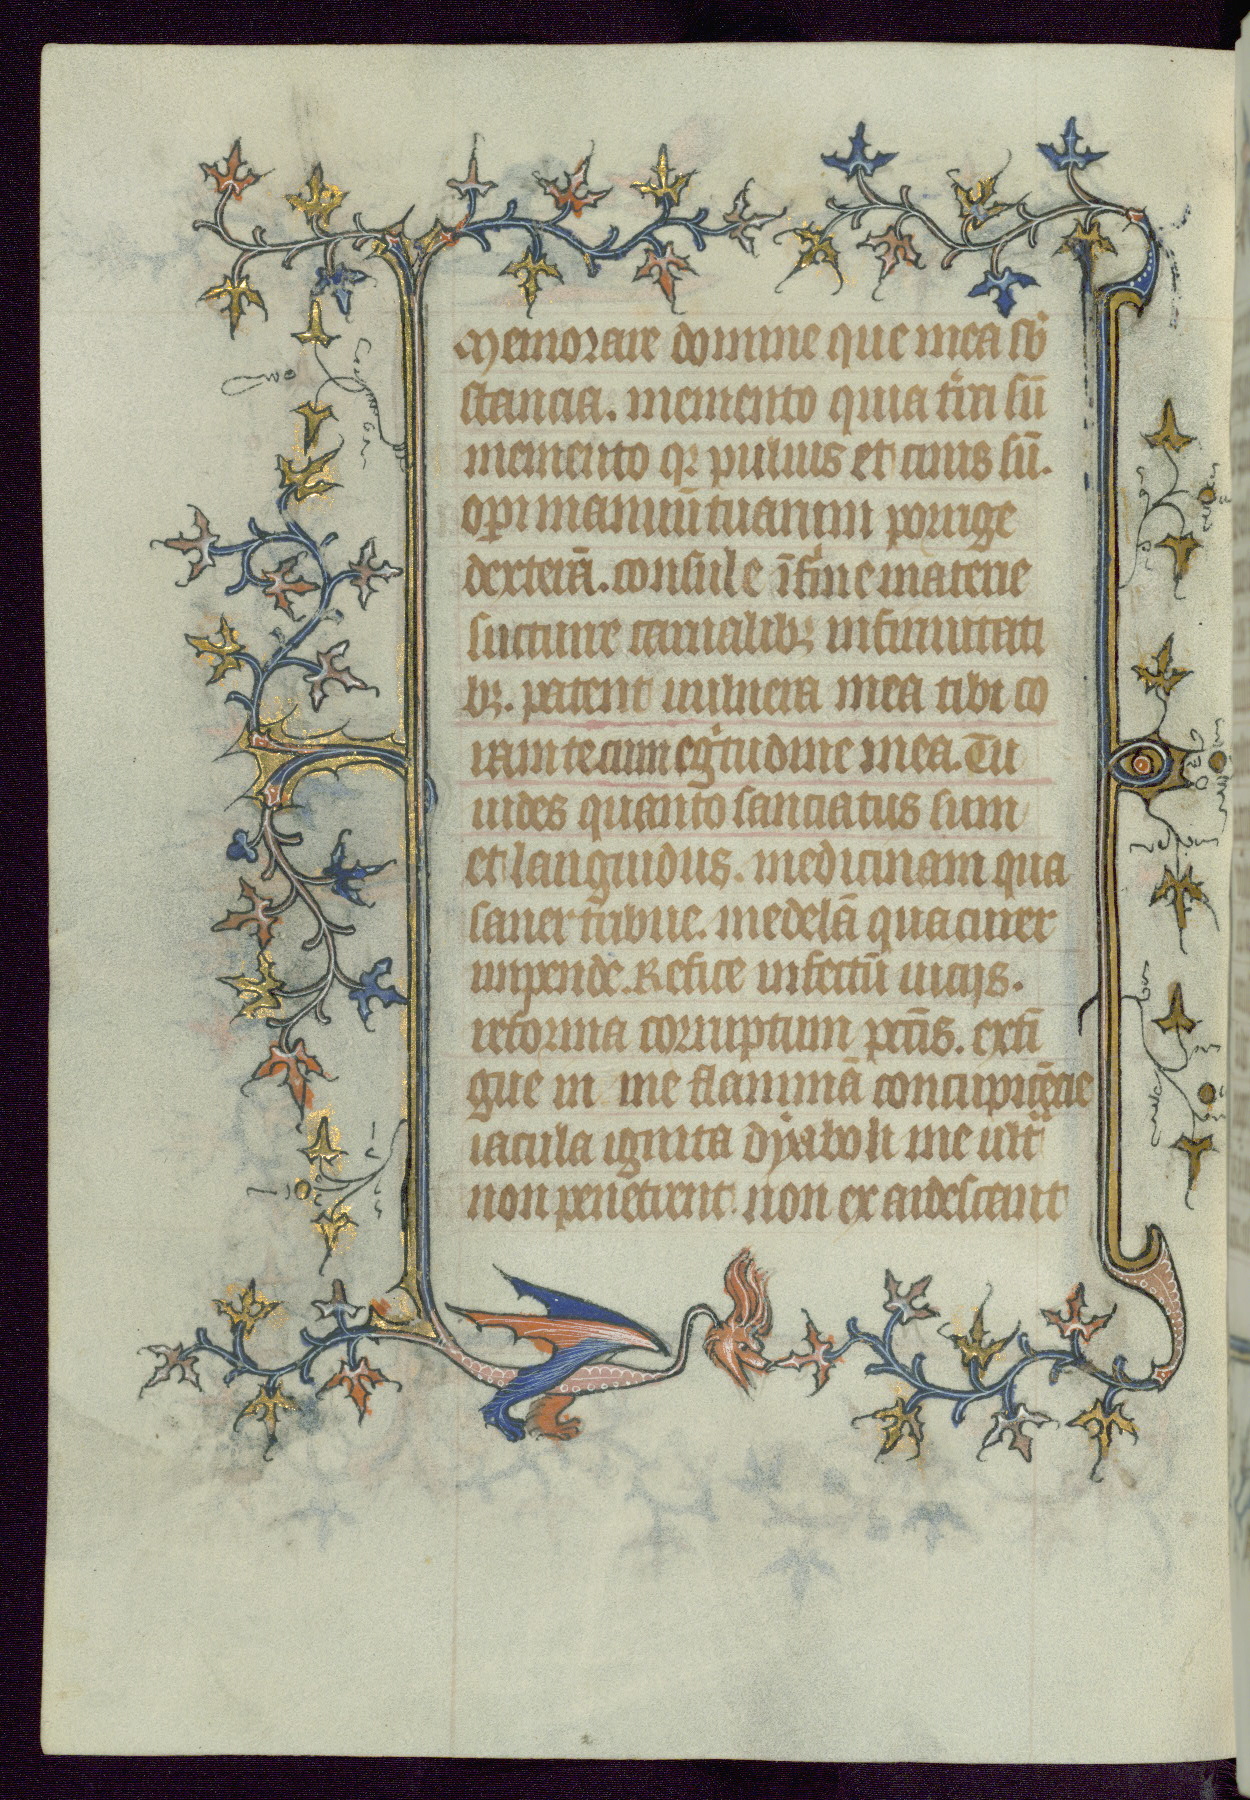 Memorare domine que mea sb̄
stancia. memento quia t̄ra sū
memento qꝛ puluis et cinis sū.
op̱i manuū tuarum porrige
dexterā. consule īfirme materie
succurre carnalibꝫ infirmitati
bꝫ. patent uulnera mea tibi co
ram te cum egͥtudine mea. Tu
uides quanto sauciatus sum
et languidus. medicinam qua
saner tribue. medelā qua curer
impende. Refice infectū uicijs.
reforma corruptum pctīs. extī
gue in me flammā concupiscēcie
iacula ignita dyaboli me ult̄
non penetrent non exardescant